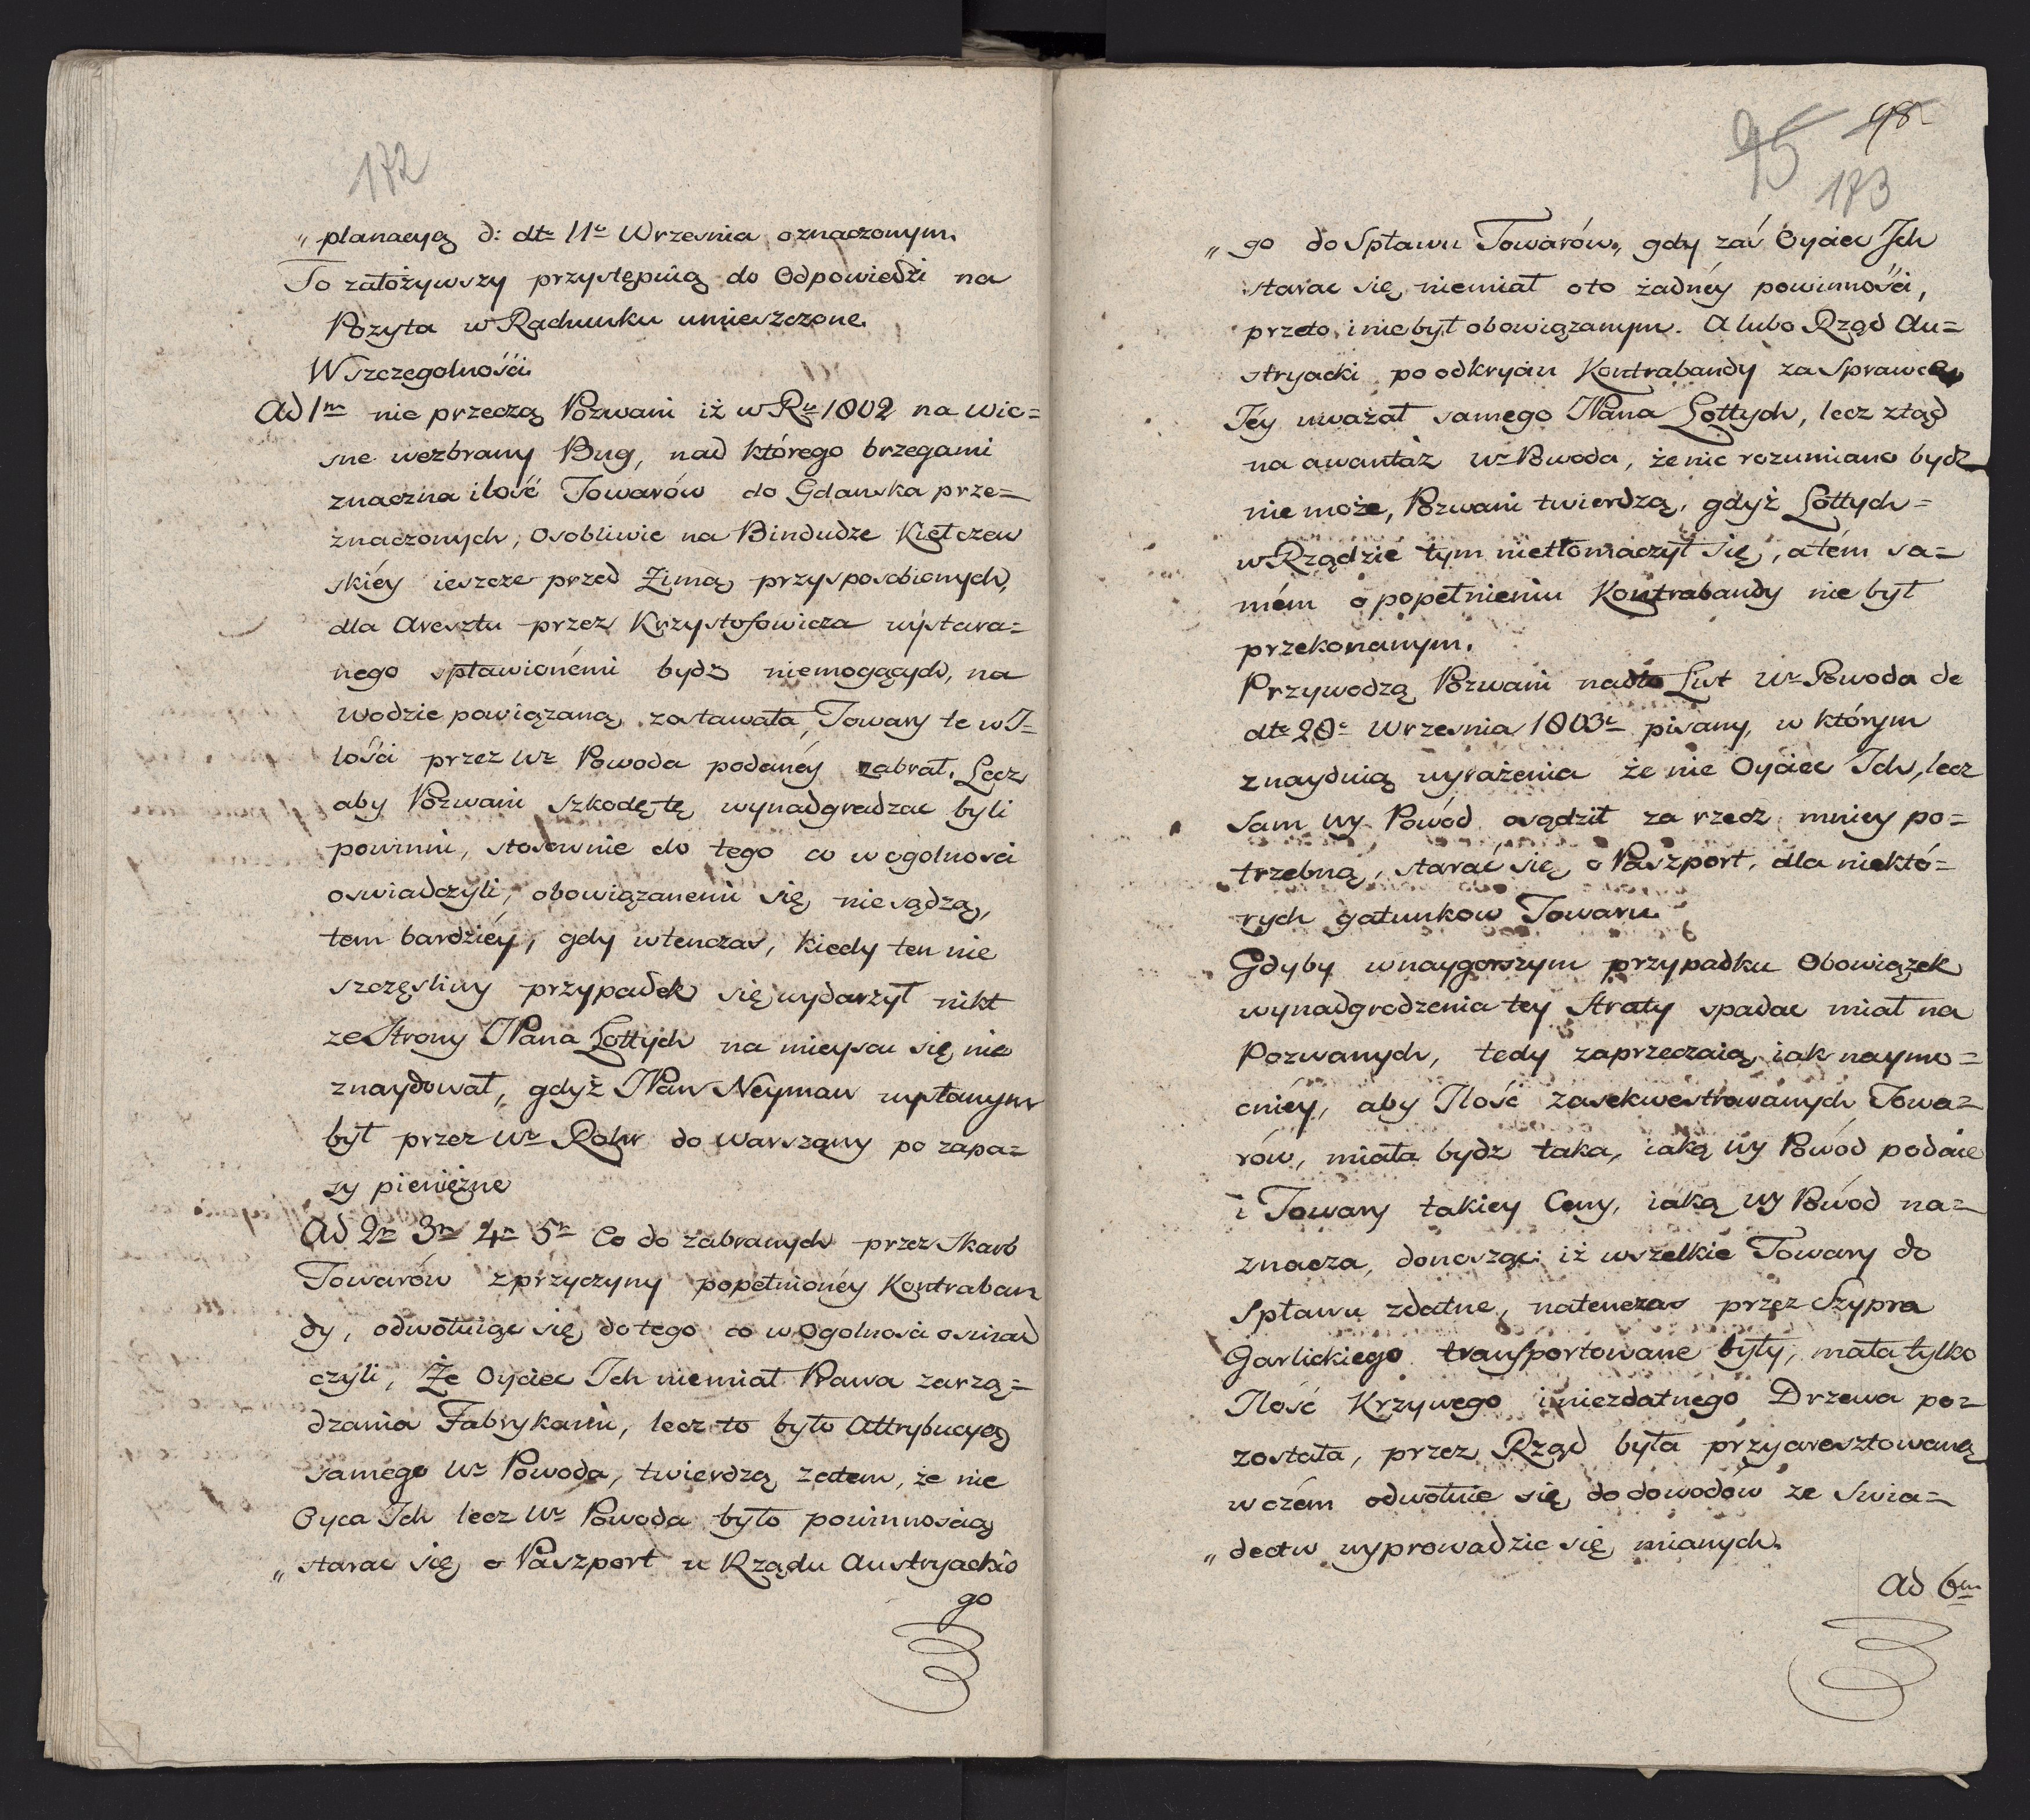 172
„ planacyą d: dte 11e Wrzesnia oznaczonym.
To załozywszy przystępuią do Odpowiedzi na
Pozyta w Rachunku umieszczone.
W szczegolności.
Ad 1m nie przeczą Pozwani iż w Ru 1802 na wio=
sne wezbrany Bug, nad którego brzegami
znaczna ilość Towarów do Gdanska prze=
znaczonych, osobliwie na Bindudze Kiełczew
skiéy ieszcze przed Zimą przysposobionych,
dla Aresztu przez Krzysztofowicza wystara=
nego spławionémi bydz niemogących, na
wodzie powiązaną zostawała, Towary te w I=
lości przez Wo Powoda podanéy zabrał. Lecz
aby Pozwani szkodę tę wynadgradzac byli
powinni, stosownie do tego co w ogolnosci
oswiadczyli, obowiązanemi się nie sądzą,
tem bardziéy, gdy wtenczas, kiedy ten nie
szczęsliwy przypadek się wydarzył nikt
ze Strony JPana Lottych na mieyscu się nie
znaydował, gdyż JPan Neyman wysłanym
był przez Wo Rohr do Warszawy po zapa=
sy pienięzne
Ad 2m 3m 4m 5m Co do zabranych przez Skarb
Towarów z przyczyny popełnionéy Kontraban
dy, odwołuiąc się do tego co w Ogolnosci oswiad
czyli, Że Oyciec Ich niemiał Prawa zarzą=
dzania Fabrykami, lecz to było Attrybucyą
samego Wo Powoda, twierdzą zatem, że nie
Oyca Ich lecz Wo Powoda było powinnoscią
„ starac się o Paszport u Rządu Austryackie
go
95 98
173
„ go do Spławu Towarów, gdy zaś Oyciec Ich
starac się niemiał oto żadnéy powinności,
przeto i niebył obowiązanym. A lubo Rząd Au=
stryacki po odkryciu Kontrabandy za Sprawcę
Téy uważał samego JPana Lottych, lecz ztąd
na awantaż Wo Powoda, że nic rozumiano bydź
nie może, Pozwani twierdzą, gdyż Lottych=
w Rządzie tym nietłomaczył się, a tém sa=
mém o popełnieniu Kontrabandy nie był
przekonanym.
Przywodzą Pozwani nadto List Wo Powoda de
dte 28e Wrzesnia 1803e pisany, w którym
znayduią wyrażenia że nie Oyciec Ich, lecz
sam Wy Powód osądził za rzecz mniey po=
trzebną, starać się o Paszport, dla niektó=
rych gatunkow Towaru.
Gdyby w naygorszym przypadku Obowiązek
wynadgrodzenia tey Straty spadac miał na
Pozwanych, tedy zaprzeczaią iak naymo=
cniéy, aby Ilość zasekwestrowanych Towa=
rów, miała bydz taka, iaką Wy Powód podaie
i Towary takiey Ceny, iaką Wy Powód na=
znacza, donosząc: iż wszelkie Towary do
Spławu zdatne, natenczas przez Szypra
Garlickiego transportowane były, mała tylko
Ilość Krzywego i niezdatnego Drzewa po=
została, przez Rząd była przyaresztowaną
w czém odwołuie się do dowodów ze Swia=
„ dectw wyprowadzic się mianych.
Ad 6m